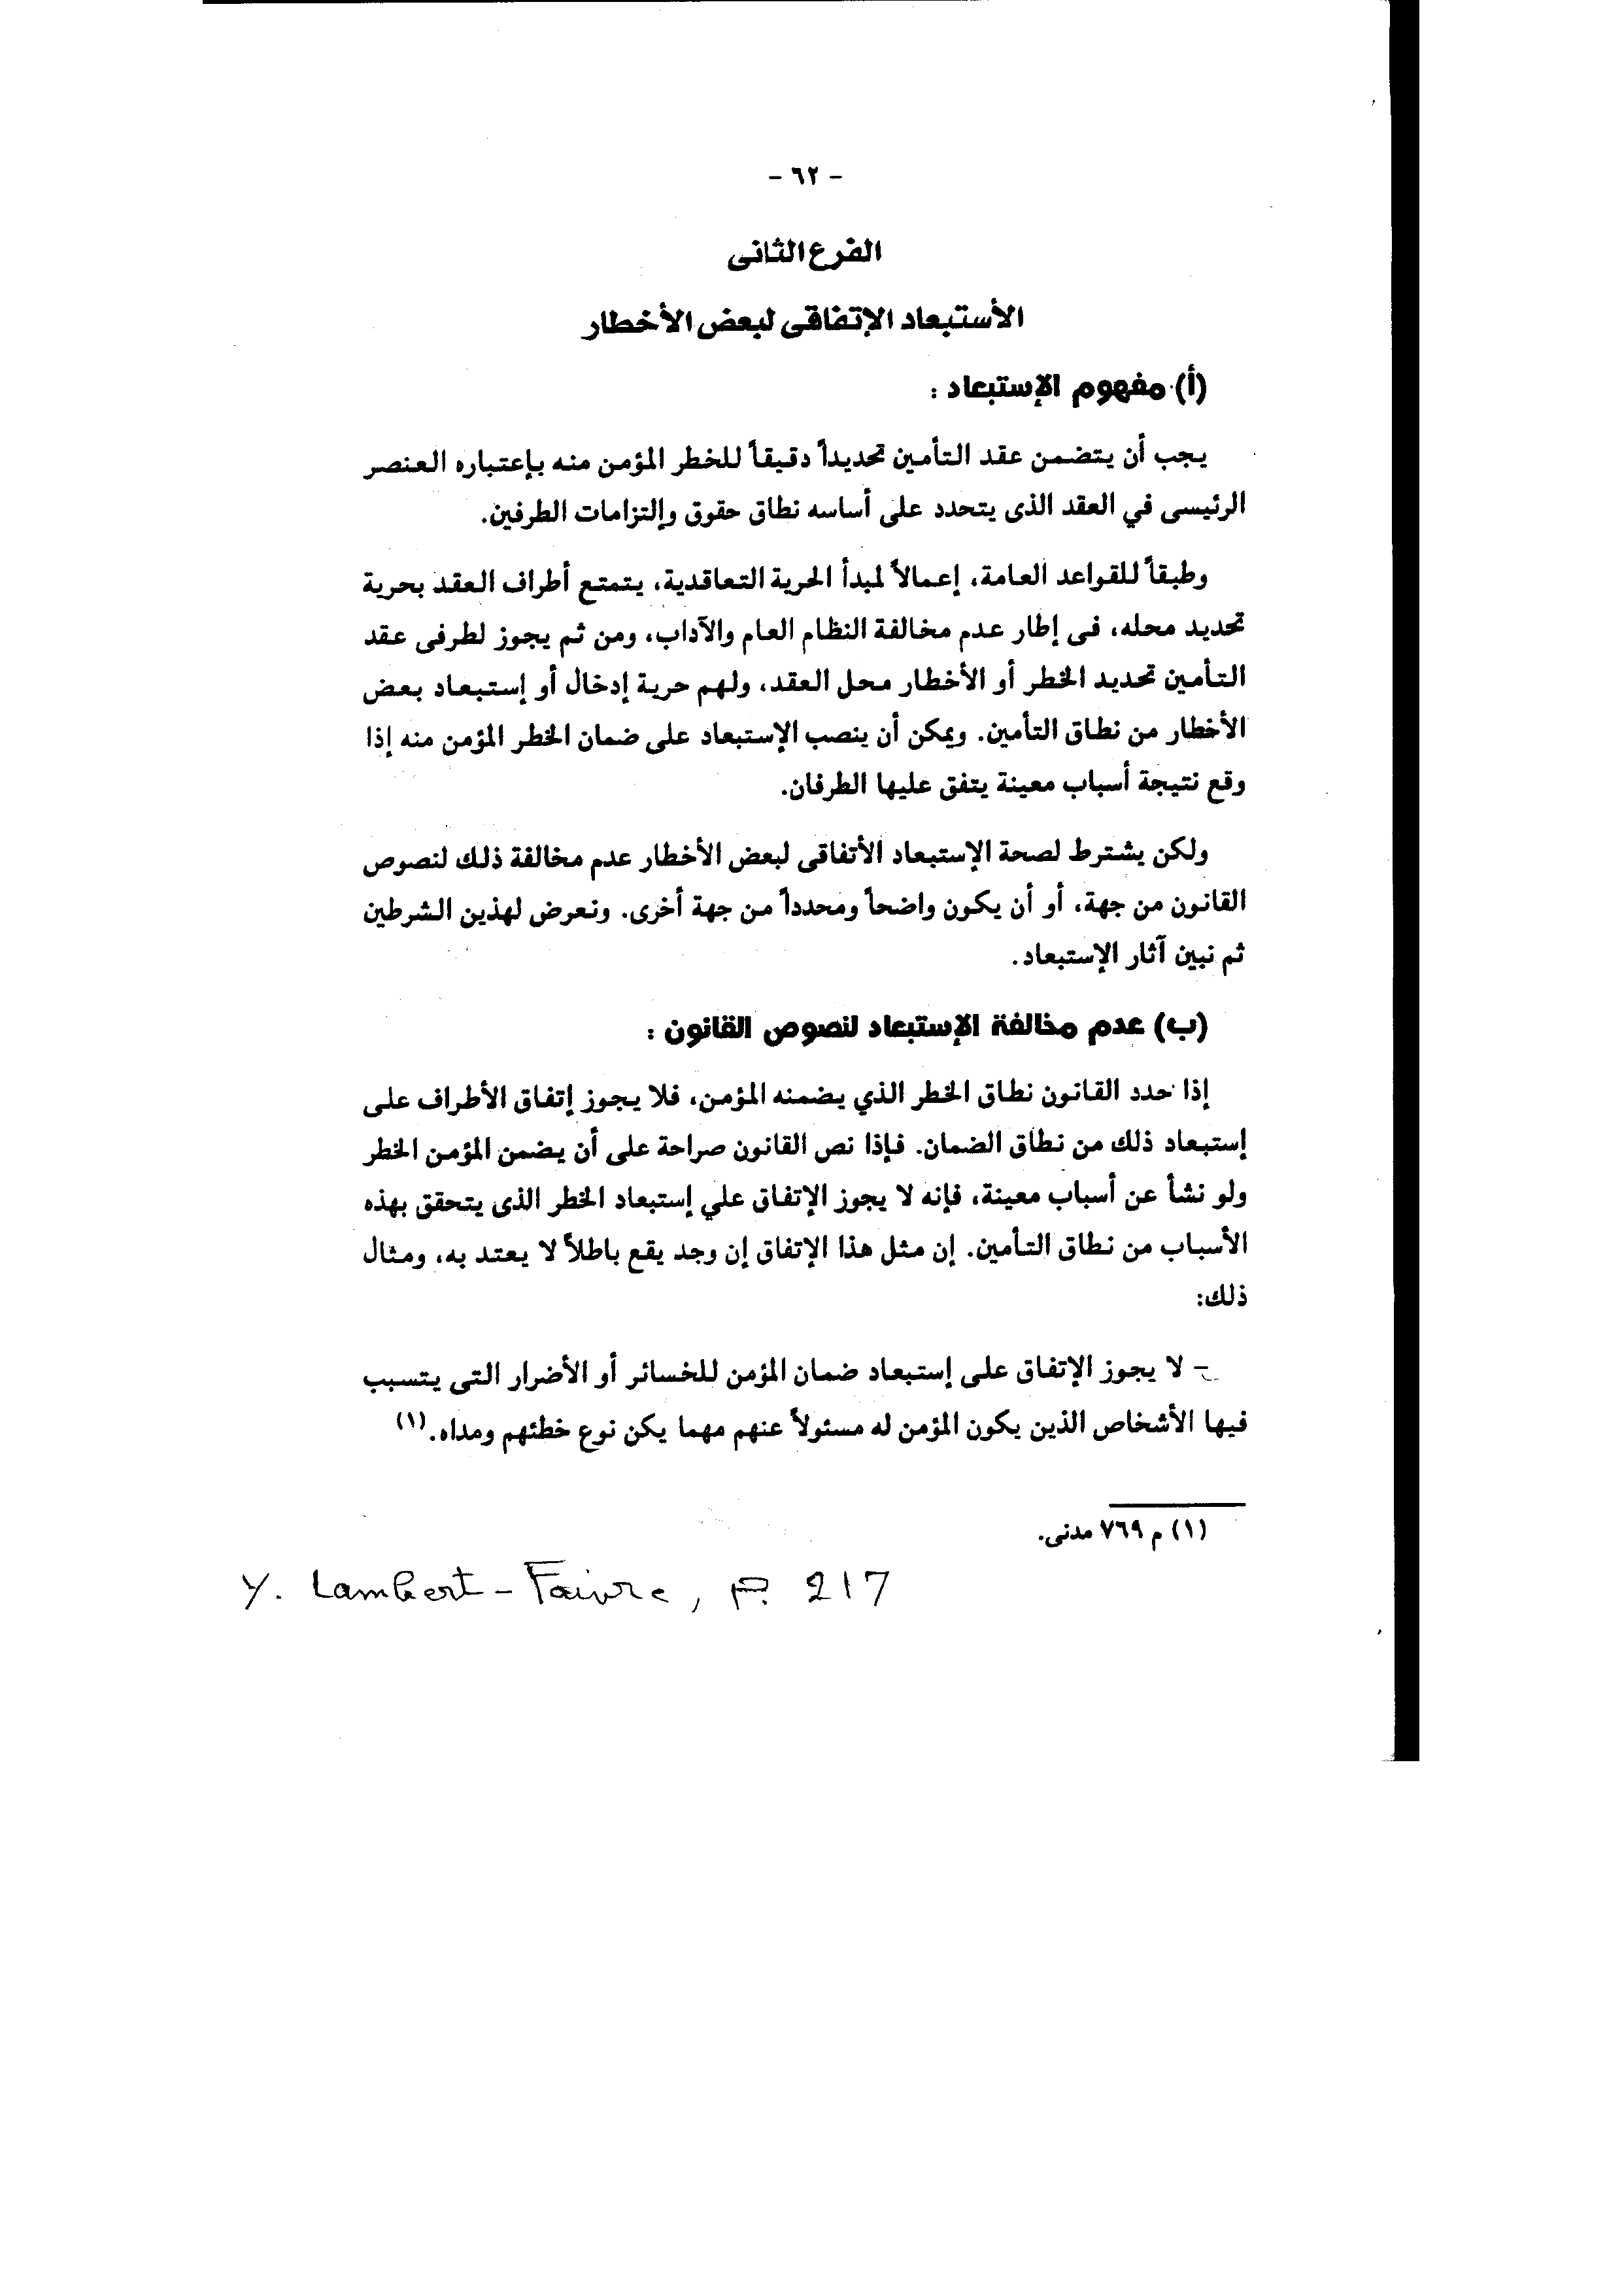 - ٦٢ -
الفرع الثانى
الأستبعاد الإتفاقى لبعض الأخطار
(أ) مفهوم الإستبعاد :
يجب أن يتضمن عقد التأمين تحديداً دقيقاً للخطر المؤمن منه بإعتباره العنصر
الرئيسى في العقد الذى يتحدد على أساسه نطاق حقوق وإلتزامات الطرفين.
وطبقاً للقواعد العامة، إعمالاً لمبدأ الحرية التعاقدية، يتمتع أطراف العقد بحرية
تحديد محله، فى إطار عدم مخالفة النظام العام والآداب، ومن ثم يجوز لطرفى عقد
التأمين تحديد الخطر أو الأخطار محل العقد، ولهم حرية إدخال أو إستبعاد بعض
الأخطار من نطاق التأمين. ويمكن أن ينصب الإستبعاد على ضمان الخطر المؤمن منه إذا
وقع نتيجة أسباب معينة يتفق عليها الطرفان.
ولكن يشترط لصحة الإستبعاد الأتفاقى لبعض الأخطار عدم مخالفة ذلك لنصوص
القانون من جهة، أو أن يكون واضحاً ومحدداً من جهة أخرى. ونعرض لهذين الشرطين
ثم نبين آثار الإستبعاد.
(ب) عدم مخالفة الإستبعاد لنصوص القانون :
إذا حدد القانون نطاق الخطر الذي يضمنه المؤمن، فلا يجوز إتفاق الأطراف على
إستبعاد ذلك من نطاق الضمان. فإذا نص القانون صراحة على أن يضمن المؤمن الخطر
ولو نشأ عن أسباب معينة، فإنه لا يجوز الإتفاق علي إستبعاد الخطر الذى يتحقق بهذه
الأسباب من نطاق التأمين. إن مثل هذا الإتفاق إن وجد يقع باطلاً لا يعتد به، ومثال
ذلك:
- لا يجوز الإتفاق على إستبعاد ضمان المؤمن للخسائر أو الأضرار التى يتسبب
فيها الأشخاص الذين يكون المؤمن له مسئولاً عنهم مهما يكن نوع خطئهم ومداه.(١)
(١) م ٧٦٩ مدنى.
Y. Lambert-Faivre, P. 217